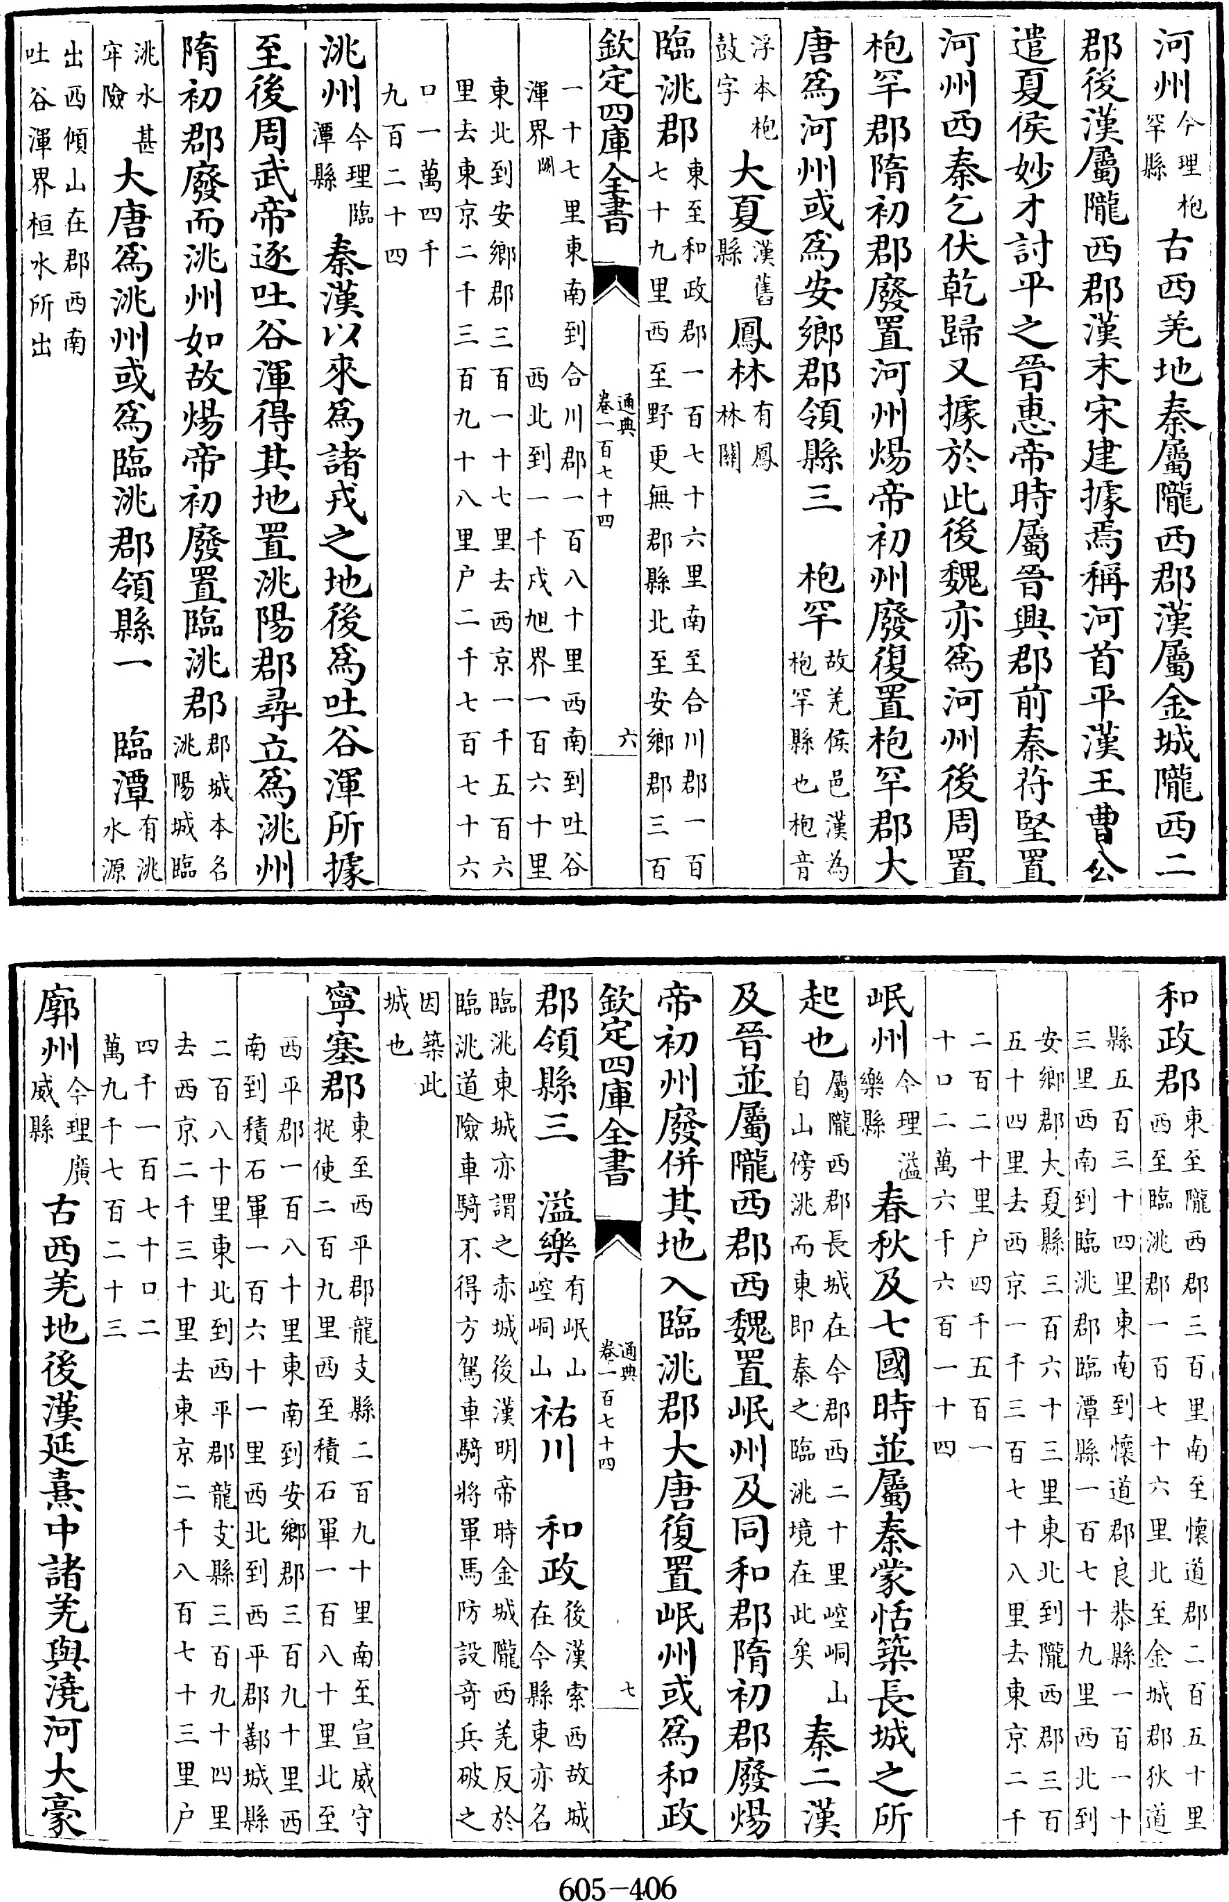 河州今理枹罕縣古西羌地秦屬隴西郡漢屬金城隴西二
郡後漢屬隴西郡漢末宋建據焉稱河首平漢王曹公
遣夏侯妙才討平之晉惠帝時屬晉興郡前秦苻堅置
河州西秦乞伏乾歸又據於此後魏亦為河州後周置
枹罕郡隋初郡廢置河州煬帝初州廢復置枹罕郡大
唐為河州或為安鄉郡領縣三 枹罕故羌侯邑漢為枹罕縣也枹音
浮本枹鼓字 大夏漢舊縣 鳳林有鳳林關
臨洮郡東至和政郡一百七十六里南至合川郡一百七十九里西至野更無郡縣北至安鄉郡三百
欽定四庫全書 通典卷一百七十四 六
一十七里東南到合川郡一百八十里西南到吐谷渾界闕 西北到一千戍旭界一百六十里
東北到安鄉郡三百一十七里去西京一千五百六里去東京二千三百九十八里户二千七百七十六
口一萬四千九百二十四
洮州今理臨潭縣 秦漢以來為諸戎之地後為吐谷渾所據
至後周武帝逐吐谷渾得其地置洮陽郡尋立為洮州
隋初郡廢而洮州如故煬帝初廢置臨洮郡郡城本名洮陽城臨
洮水甚牢險 大唐為洮州或為臨洮郡領縣一 臨潭有洮水源
出西傾山在郡西南吐谷渾界桓水所出
和政郡東至隴西郡三百里南至懷道郡二百五十里西至臨洮郡一百七十六里北至金城郡狄道
縣五百三十四里東南到懷道郡良恭縣一百一十三里西南到臨洮郡臨潭縣一百七十九里西北到
安鄉郡大夏縣三百六十三里東北到隴西郡三百五十四里去西京一千三百七十八里去東京二千
二百二十里户四千五百一十口二萬六千六百一十四
岷州今理溢樂縣 春秋及七國時並屬秦蒙恬築長城之所
起也屬隴西郡長城在今郡西二十里崆峒山自山傍洮而東即秦之臨洮境在此矣 秦二漢
及晉並屬隴西郡西魏置岷州及同和郡隋初郡廢煬
帝初州廢併其地入臨洮郡大唐復置岷州或為和政
欽定四庫全書 通典卷一百七十四 七
郡領縣三 溢樂有岷山崆峒山 祐川 和政後漢索西故城在今縣東亦名
臨洮東城亦謂之赤城後漢明帝時金城隴西羌反於臨洮道險車騎不得方駕車騎將軍馬防設奇兵破之
因築此城也
寧塞郡東至西平郡龍支縣二百九十里南至宣威守捉使二百九里西至積石軍一百八十里北至
西平郡一百八十里東南到安鄉郡三百九十里西南到積石軍一百六十一里西北到西平郡鄯城縣
二百八十里東北到西平郡龍支縣三百九十四里去西京二千三十里去東京二千八百七十三里户
四千一百七十口二萬九千七百二十三
廓州今理廣威縣 古西羌地後漢延熹中諸羌與澆河大豪
605-406